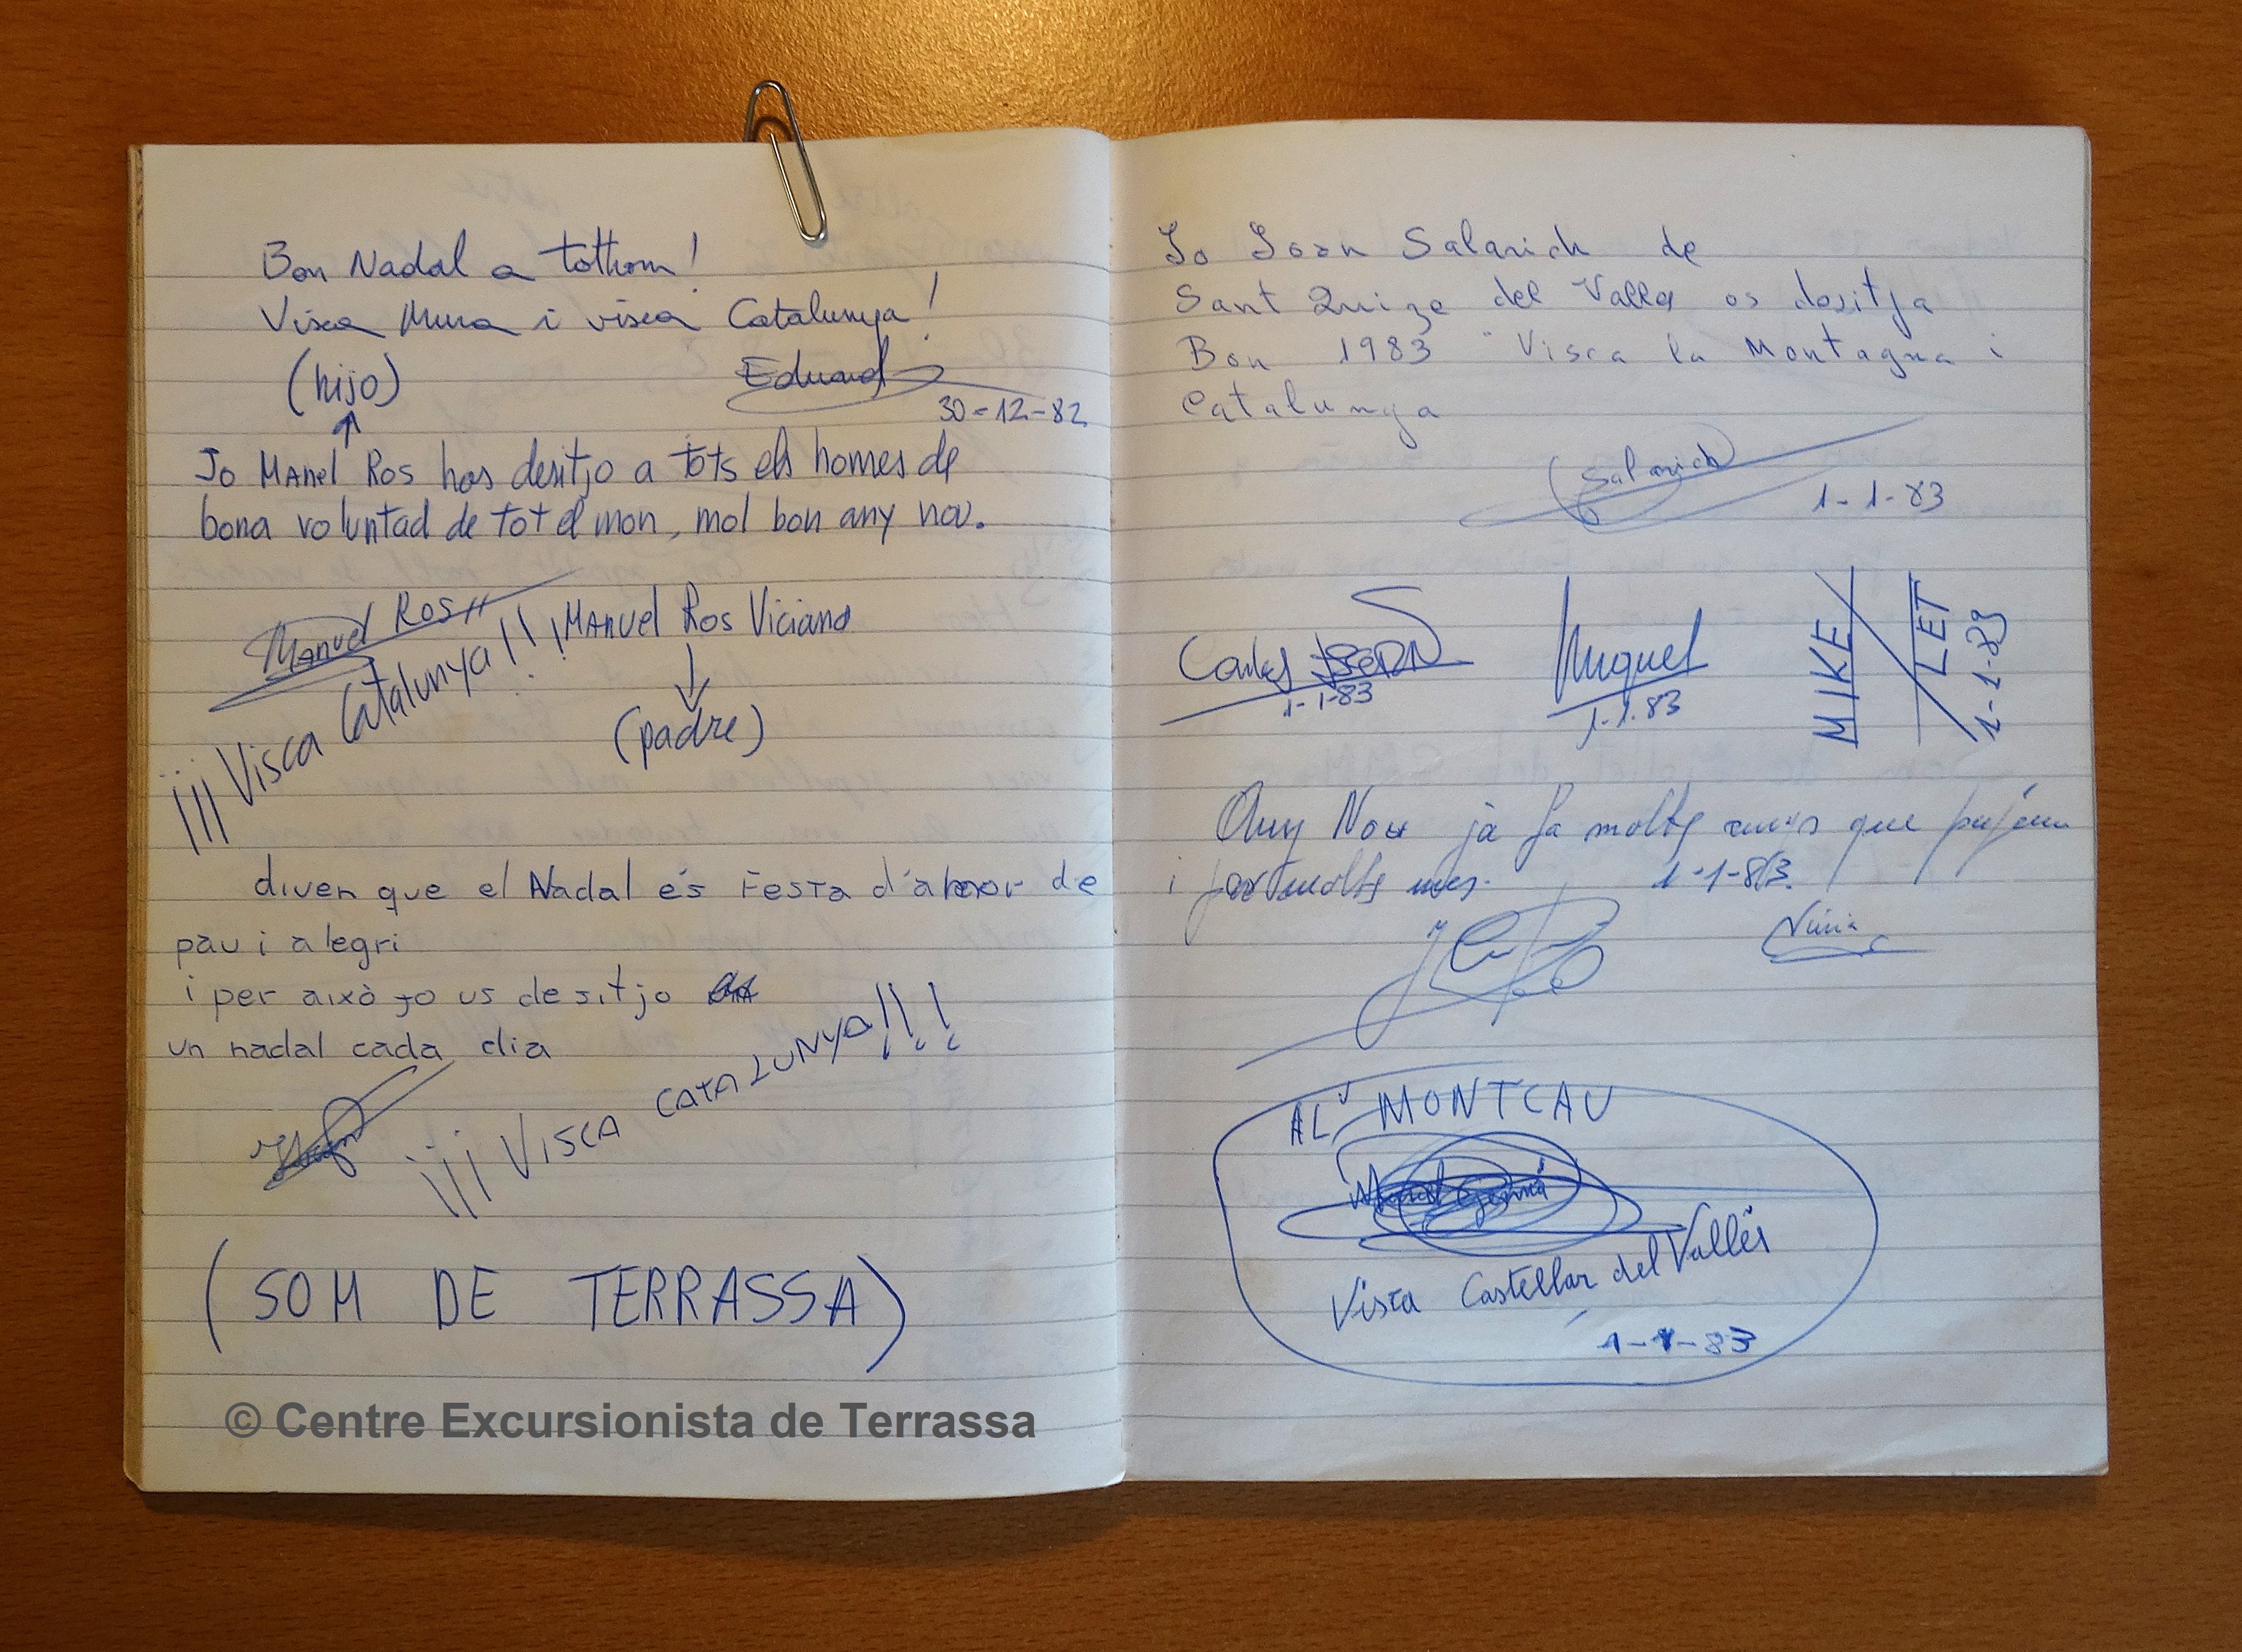 Bon Nadal a tothom!
Visca Mura i visca Catalunya!
(hijo)
Eduard
30-12-82
Jo Manel Ros hos desitjo a tots els homes de
bona voluntad de tot el mon, mol bon any nou.
Manuel Ros
¡¡¡Visca Catalunya!!!
Manuel Ros Viciano
(padre)
diven que el Nadal és Festa d'amor de
pau i alegri
i per això jo us desitjo
un nadal cada dia
¡¡¡ Visca CATALUNYA!!!
(SOM DE TERRASSA)
© Centre Excursionista de Terrassa
Jo Joan Salarich de
Sant Quize del Valles os desitja
Bon 1983 Visca la Montagna i
Catalunya
Salarich
1-1-83
Carles ISERN
1-1-83
Miquel
1.1.83
MIKE/LET
1-1-83
Any Nou ja fa molts anys que pujem
i per molts mes.
1-1-83.
Núria
AL MONTCAU
Visca Castellar del Vallès
1-1-83